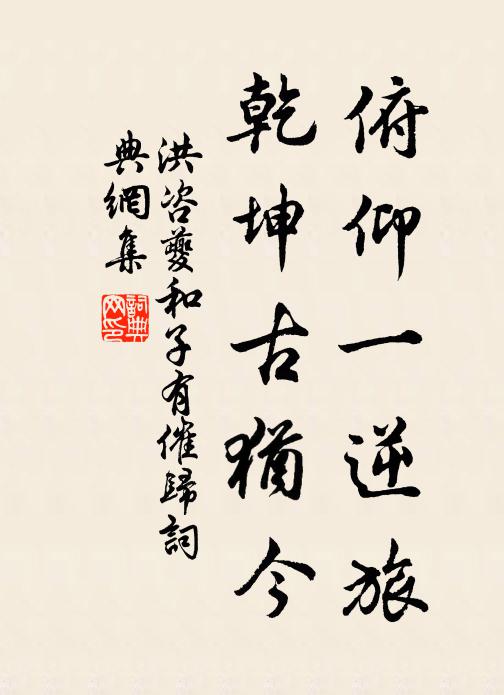 俯仰一逆旅
乾坤古猶今
洪咨夔和子有催歸詞
典網集
詞典網印